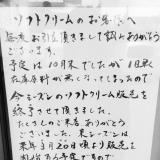 ソフトクリームのお客様へ
毎度お引立頂きまして誠にありがとう
ございます。
予定は10月末でしたが1日頃
在庫原料が無くなってしまったので
今シーズンのソフトクリーム販売を
終了させて頂きました。
たくさんのご来店ありがとう
ございました。来シーズンは
来年3月20日頃より販売を
開始する予定ですので